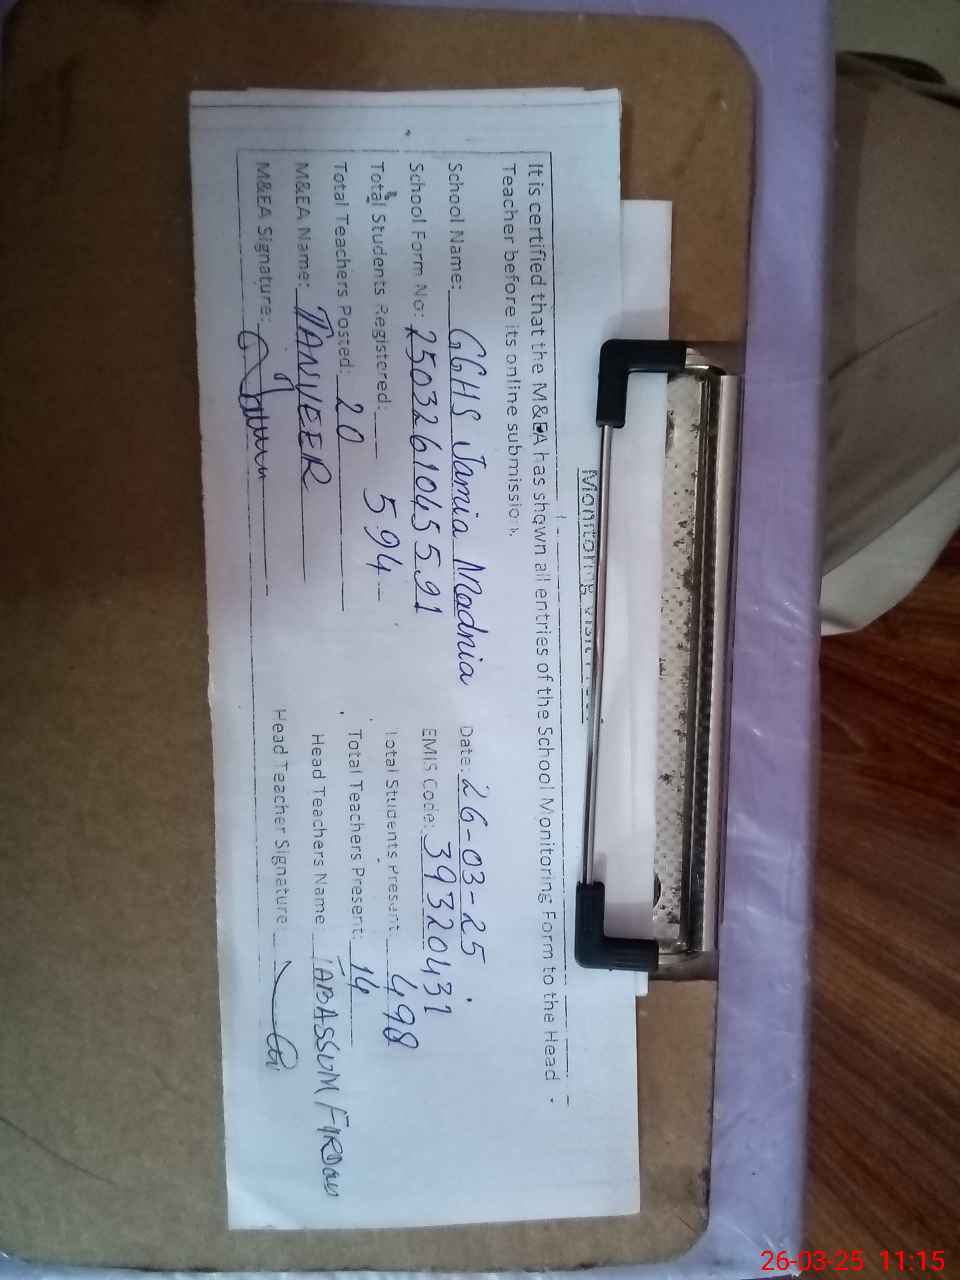 Monitoring Visit
It is certified that the M&EA has shown all entries of the School Monitoring Form to the Head
Teacher before its online submission.
School Name: GGHS Jamia Madnia Date: 26-03-25
School Form No: 25032610455 91 EMIS Code: 39320431
Total Students Registered: 594 Total Students Present: 498
Total Teachers Posted: 20 Total Teachers Present: 14
M&EA Name: TANVEER Head Teachers Name: TABASSUM FIRDOUS
M&EA Signature: Head Teacher Signature:
26-03-25 11:15